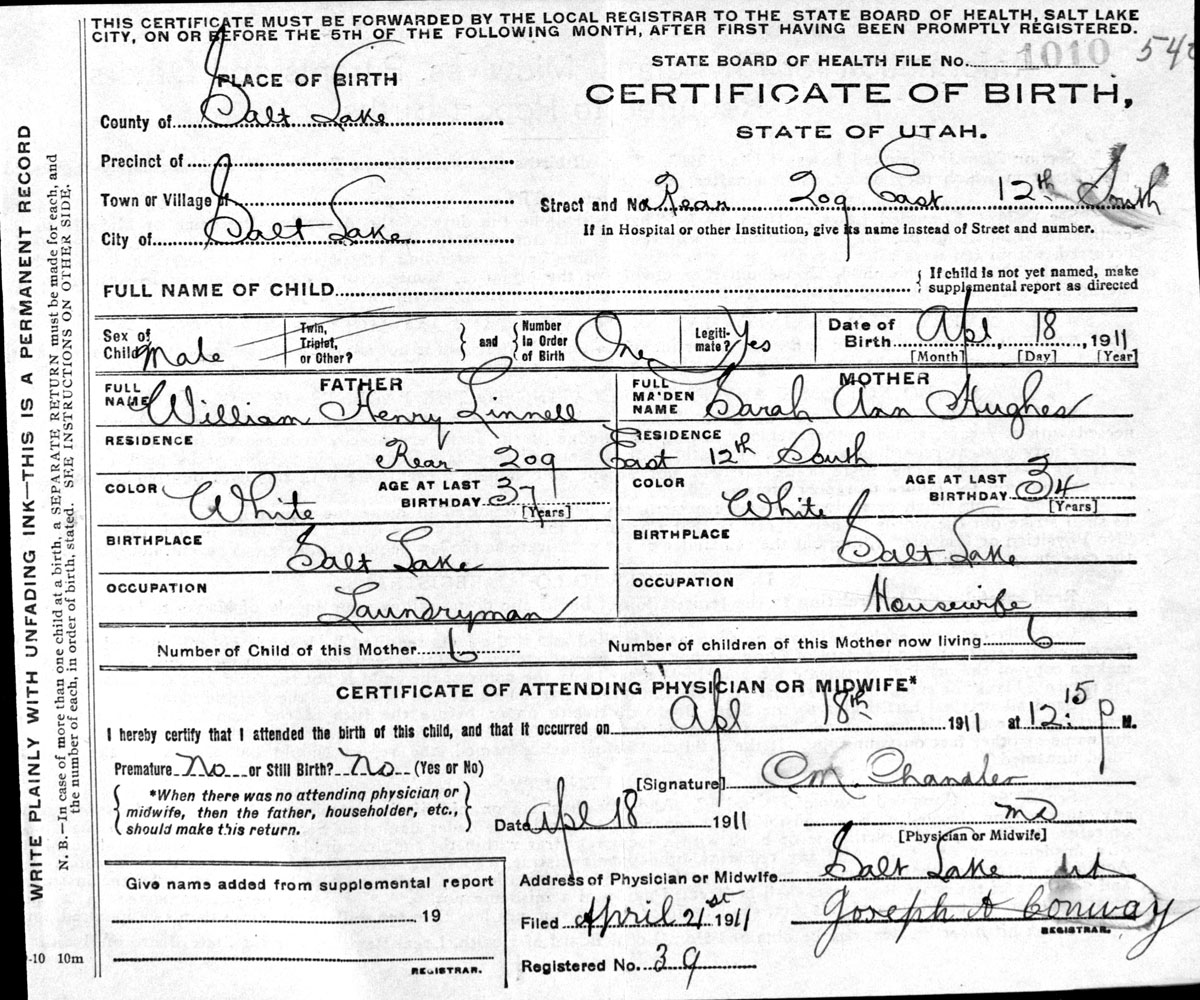 THIS CERTIFICATE MUST BE FORWARDED BY THE LOCAL REGISTRAR TO THE STATE BOARD OF HEALTH, SALT LAKE
CITY, ON OR BEFORE THE 5TH OF THE FOLLOWING MONTH, AFTER FIRST HAVING BEEN PROMPTLY REGISTERED.
STATE BOARD OF HEALTH FILE No. 1010
PLACE OF BIRTH
CERTIFICATE OF BIRTH,
County of Salt Lake
STATE OF UTAH.
Precinct of
Town or Village of
Street and No. Rear 209 East 12th South
City of Salt Lake
If in Hospital or other Institution, give its name instead of Street and number.
FULL NAME OF CHILD
{ If child is not yet named, make
supplemental report as directed
Sex of Child Male
Twin, Triplet, or Other? } and { Number in Order of Birth One
Legitimate? Yes
Date of Birth Apl 18, 1911
[Month] [Day] [Year]
FATHER
FULL NAME William Henry Linnell
MOTHER
FULL MAIDEN NAME Sarah Ann Hughes
RESIDENCE Rear 209 East 12th South
RESIDENCE
COLOR White
AGE AT LAST BIRTHDAY 37 [Years]
COLOR White
AGE AT LAST BIRTHDAY 34 [Years]
BIRTHPLACE Salt Lake
BIRTHPLACE Salt Lake
OCCUPATION Laundryman
OCCUPATION Housewife
Number of Child of this Mother 6
Number of children of this Mother now living 6
CERTIFICATE OF ATTENDING PHYSICIAN OR MIDWIFE*
I hereby certify that I attended the birth of this child, and that it occurred on Apl 18th 1911 at 12:15 P M.
Premature No or Still Birth? No (Yes or No)
[Signature] C M. Chandler
{ *When there was no attending physician or
midwife, then the father, householder, etc.,
should make this return. }
Date Apl 18 1911
MD
[Physician or Midwife]
Address of Physician or Midwife Salt Lake
Give name added from supplemental report
19
REGISTRAR.
Filed April 21st 1911
Joseph A Conway
REGISTRAR.
Registered No. 39
-10 10m
WRITE PLAINLY WITH UNFADING INK—THIS IS A PERMANENT RECORD
N. B.—In case of more than one child at a birth, a SEPARATE RETURN must be made for each, and
the number of each, in order of birth, stated. SEE INSTRUCTIONS ON OTHER SIDE.